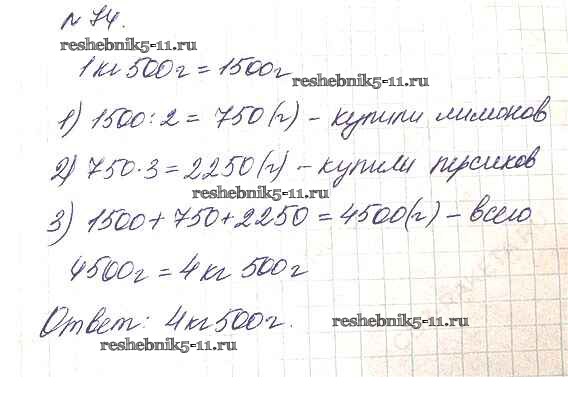 № 74.
reshebnik5-11.ru
1 кг 500 г = 1500 г
reshebnik5-11.ru
1) 1500 : 2 = 750 (г) - купили лимонов
2) 750 · 3 = 2250 (г) - купили персиков
reshebnik5-11.ru
3) 1500 + 750 + 2250 = 4500 (г) - всего
4500 г = 4 кг 500 г
Ответ: 4 кг 500 г.
reshebnik5-11.ru
reshebnik5-11.ru